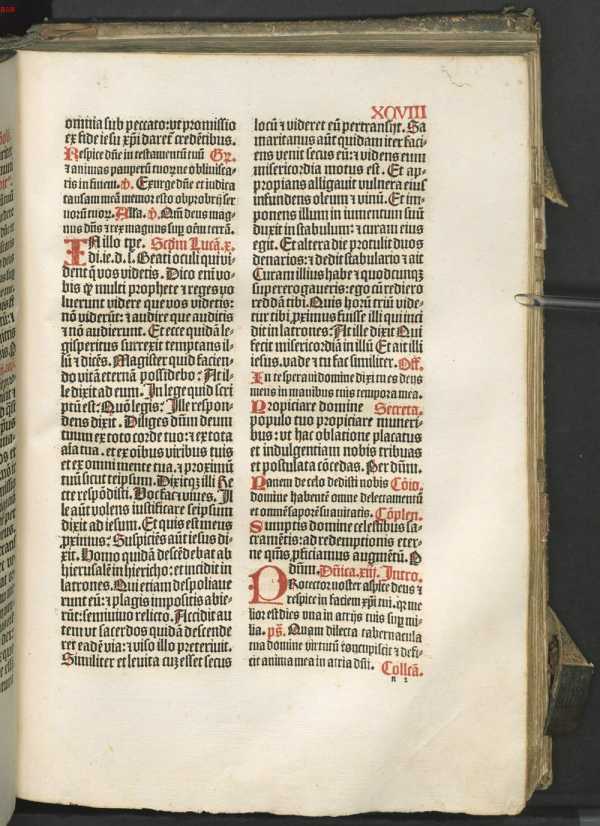 XCVIII
omnia sub peccato: ut promissio
ex fide iesu xp̄i daret̄ credētibus.
Respice dn̄e in testamentū tuū Gr̄.
⁊ animas pauperū tuorū ne oblivisca-
ris in finem. v̄. Exurge dn̄e et iudica
causam meā memor esto obprobrij ser
uorū tuorū. Alla. v̄. Qm̄ deus mag-
nus dn̄s ⁊ rex magnus sup̄ oēm terrā.
IN illo tp̄e. Scd̄m Lucā. x.
di. ie. d. s. Beati oculi qui vi
dent q̄ vos videtis. Dico eni vo-
bis ꝙ multi prophete ⁊ reges vo
luerunt videre que vos videtis:
nō viderūt: ⁊ audire que auditis
⁊ nō audierunt. Et ecce quidā le-
gisperitus surrexit temptans il-
lū ⁊ dicēs. Magister quid facien-
do vitā eternā possidebo: At il-
le dixit ad eum. In lege quid scri
ptū est: Quō legis: Ille respon-
dens dixit. Diliges dn̄m deum
tuum ex toto corde tuo: ⁊ ex tota
aīa tua. et ex oībus viribus tuis
et ex omni mente tua. ⁊ proximū
tuū sicut teipsum. Dixitqꝫ illi Re
cte respōdisti. Hoc fac ⁊ vives. Il
le aūt volens iustificare seipsum
dixit ad iesum. Et quis est meus
p̄ximus: Suspiciēs aūt iesus di-
xit. Homo quidā descēdebat ab
hierusalē in hiericho: et incidit in
latrones. Qui etiam despoliaue
runt eū: ⁊ plagis impositis abie-
rūt: semiuiuo relicto. Accidit au
tem ut sacerdos quidā descende
ret eadē via: ⁊ viso illo preteriuit.
Similiter et levita cuꝫ esset secus
locū ⁊ videret eū pertransijt. Sa
maritanus aūt quidam iter faci-
ens venit secus eū: ⁊ videns eum
misericordia motus est. Et ap-
propians alligauit vulnera eius
infundens oleum ⁊ vinū. Et im-
ponens illum in iumentum suū
duxit in stabulum: ⁊ curam eius
egit. Et altera die protulit duos
denarios: ⁊ dedit stabulario ⁊ ait
Curam illius habe ⁊ quodcunqꝫ
supererogaueris: ego cū rediero
reddā tibi. Quis horū triū vide-
tur tibi p̄ximus fuisse illi qui inci
dit in latrones: At ille dixit Qui
fecit misericordiā in illū Et ait illi
iesus. vade ⁊ tu fac similiter. Off.
In te speraui domine dixi tu es deus
meus in manibus tuis tempora mea.
Propiciare domine Secreta.
populo tuo propiciare muneri-
bus: vt hac oblatione placatus
et indulgentiam nobis tribuas
et postulata cōcedas. Per dn̄m.
Panem de celo dedisti nobis Cōio.
domine habentē omne delectamentū
et omnē saporē suauitatis. Cōplen.
Sumptis domine celestibus sa-
cramētis: ad redemptionis eter-
ne qm̄s p̄ficiamus augmētū. P
dn̄m. Dn̄ica. xiij. Intro.
PRotector noster aspice deus ⁊
respice in faciem xp̄i tui. qr me
lior est dies vna in atrijs tuis sup̄ mi-
lia. ps̄. Quam dilecta tabernacula
tua domine virtutū concupiscit ⁊ defi-
cit anima mea in atria dn̄i. Collcā.
n 2